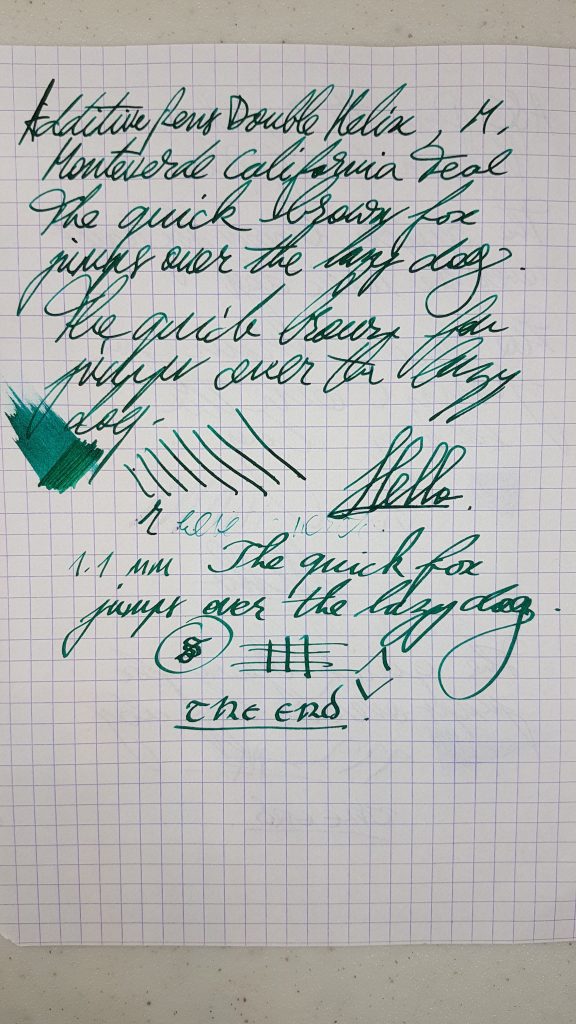 Additive Pens Double Helix, M,
Monteverde California Teal
The quick brown fox
jumps over the lazy dog.
The quick brown fox
jumps over the lazy
dog.
Hello.
1.1 mm The quick fox
jumps over the lazy dog.
THE END.